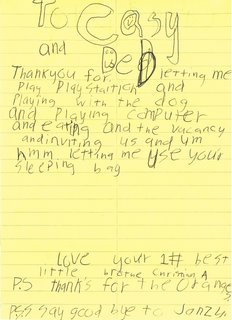 To Casy
and
DeD
Thankyou for letting me
Play PlayStaition and
Playing with the dog
and Playing computer
and eating and the vacancy
and inviting us and um
hmm letting me use your
sleeping bag
Love your 1# best
little brothe
PS thank's for the Orange
PSS say good bye to